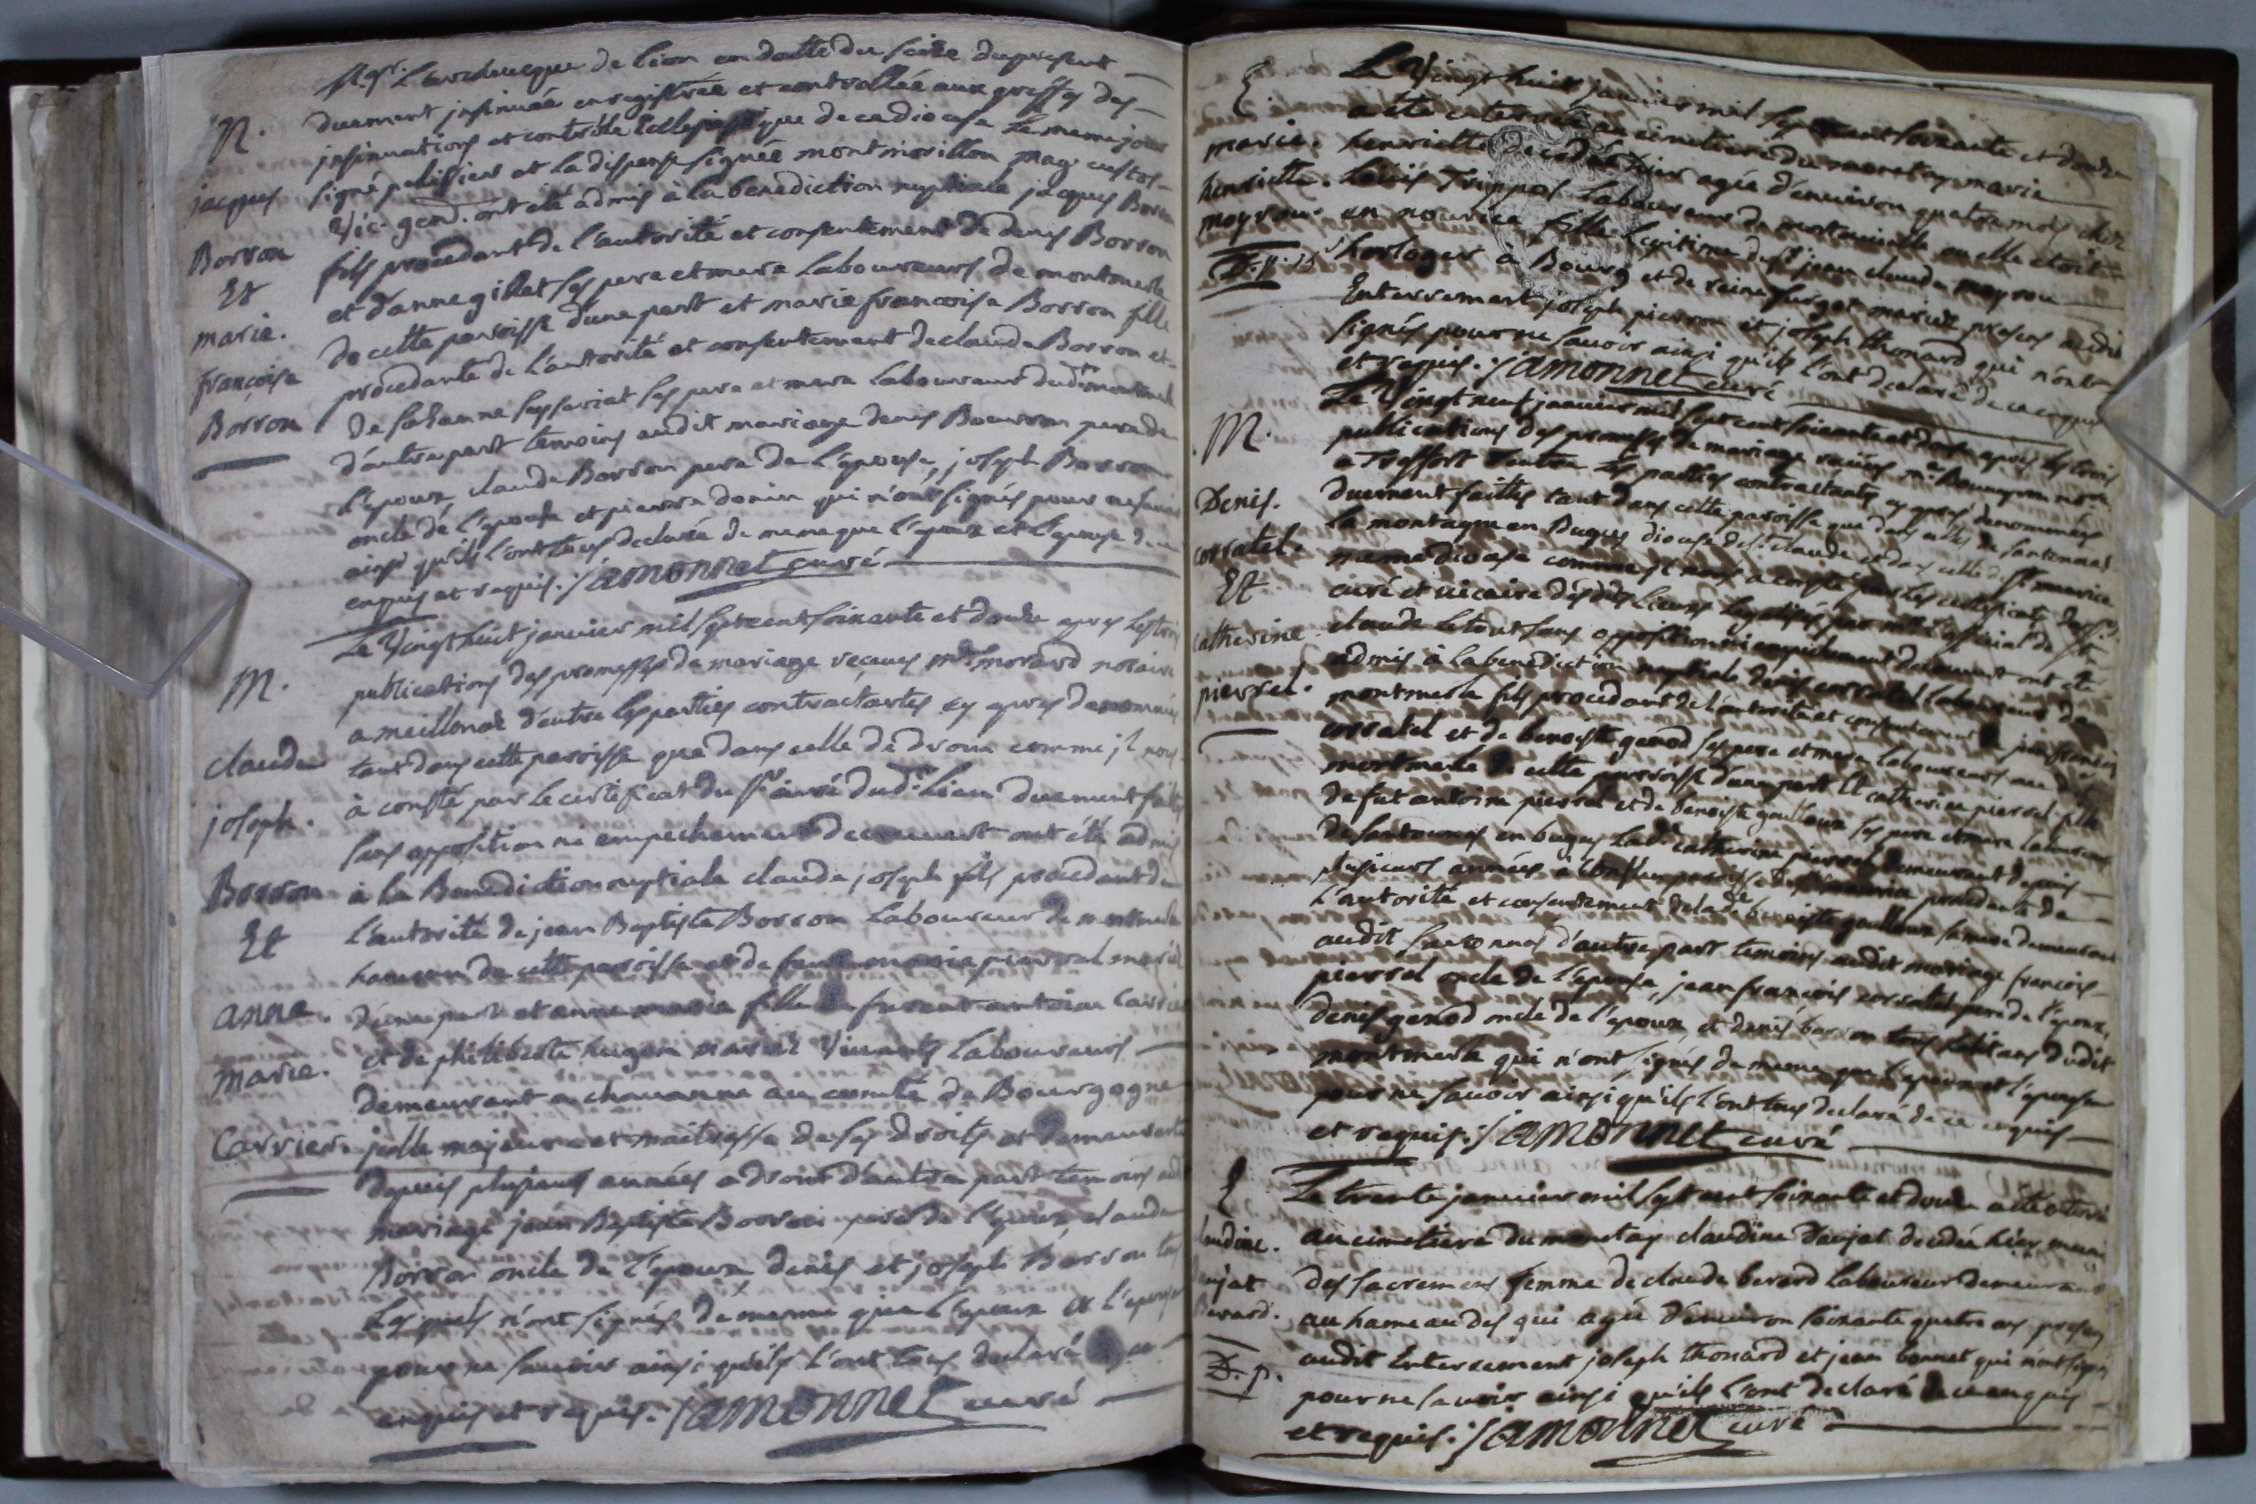 Mgr. L'archeveque de lion en datte du seize du present
duement insinuée enregistrée et controllée aux greffes des
insinuations et contrôle Ecclesiastique de ce diocese le meme jour
signé pelissier et la dispense signée montmorillon
Vic. gend. ont été admis à la benediction nuptiale jacques Borron
fils procedant de l'autorité et consentement de denis Borron
et d'anne gillet ses pere et mere laboureurs de montmerle
de cette paroisse d'une part et marie francoise Borron fille
procedante de l'autorité et consentement de claude Borron et
de ses pere et mere laboureurs dudt. montmerle
d'autre part temoins audit mariage denis Bourron pere de
l'epoux, claude Borron pere de l'epouse, joseph Borron
oncle de l'epouse et pierre donin qui n'ont signés pour ne savoir
ainsi qu'ils l'ont tous declaré de meme que l'epoux et l'epouse de ce
enquis et requis. /amonnet curé
M.
jacques
Borron
Et
marie.
francoise
Borron
Le Vingt huit janvier mil sept cent soixante et douze apres les trois
publications des promesses de mariage reçeues me morand notaire
a meillonaz d'entre les parties contractantes cy apres denommées
tant dans cette paroisse que dans celle de drom comme jl nous
à consté par le certificat du Sr curé dudt. lieu duement faites
sans opposition ni empechement decouvert ont été admis
à la Benediction nuptiale claude joseph fils procedant de
l'autorité de jean Baptiste Borron laboureur de montmerle
hameau de cette paroisse et de feue marie pierrel mariés
d'une part et anne marie fille de furent antoine Carrier
et de philiberte hugon mariés Vivants laboureurs
demeurant a chavanne au comté de Bourgogne
fille majeure et maitresse de ses droits et demeurante
depuis plusieurs années a drom d'autre part temoins audt.
mariage jean Baptiste Borron pere de l'epoux claude
Borron oncle de l'epoux denis et joseph Borron tous
lesquels n'ont signés de meme que l'epoux et l'epouse
pour ne savoir ainsi qu'ils l'ont tous declaré de ce
enquis et requis. /amonnet curé
M.
claude
joseph.
Borron
Et
anne.
marie.
Carrier
Le Vingt huit janvier mil sept cent soixante et douze
a été enterrée au cimetiere du monetay marie
henriette decedée hier agée d'environ quatre mois chez
laboureur de montmerle ou elle etoit
en nourrice fille legitime du Sr jean claude moyrou
horloger a Bourg et de reine mariez presens audit
Enterrement joseph pierron et joseph thonard qui n'ont
signés pour ne savoir ainsi qu'ils l'ont declaré de ce enquis
et requis. /amonnet curé
E
marie.
henriette.
moyrou.
D. p.
Le Vingt neuf janvier mil sept cent soixante et douze apres les trois
publications des promesses de mariage recües me
a Treffort d'entre les parties contractantes cy apres denommées
duement faittes tant dans cette paroisse que dans celles de
la montagne en Bugey diocese de St. claude et dans celle de St. maurice
meme diocese comme jl nous a consté par les certificats des Srs.
curé et vicaire desdits lieux legalisés par mr. l'official de St.
claude le tout sans opposition ni empechement decouvert ont été
admis à la benediction nuptiale denis corratel laboureur de
montmerle fils procedant de l'autorité et consentement de jean francois
corratel et de benoiste genod ses pere et mere laboureurs audit
montmerle de cette parroisse d'une part Et catherine pierrel fille
de fut antoine pierrel et de benoiste ses pere et mere laboureurs
en bugey ladte. catherine pierrel demeurant depuis
plusieurs années a procedante de
l'autorité et consentement de ladte benoiste sa mere demeurant
audit d'autre part temoins audit mariage francois
pierrel oncle de l'epouse, jean francois corratel pere de l'epoux,
denis genod oncle de l'epoux, et denis borron tous habitans dudit
montmerle qui n'ont signés de meme que l'epoux et l'epouse
pour ne savoir ainsi qu'ils l'ont tous declaré de ce enquis
et requis. /amonnet curé
M.
Denis.
corratel.
Et
catherine
pierrel.
Le trente janvier mil sept cent soixante et douze a été enterrée
au cimetiere du monetay claudine danjat decedée hier munie
des sacremens femme de claude berard laboureur demeurant
au hameau des qui agée d'environ soixante quatre ans presens
audit Enterrement joseph thonard et jean bonnet qui n'ont signés
pour ne savoir ainsi qu'ils l'ont declaré de ce enquis
et requis. /amonnet curé
E
D. p.